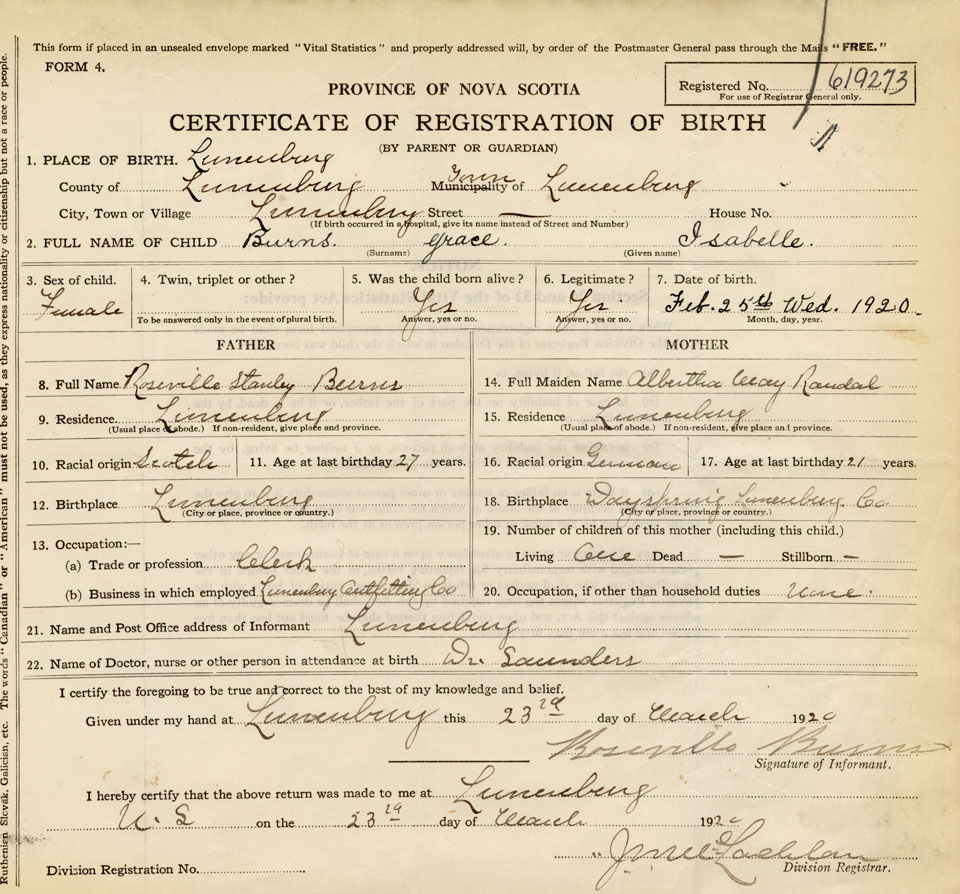 This form if placed in an unsealed envelope marked "Vital Statistics" and properly addressed will, by order of the Postmaster General pass through the Mails "FREE."
FORM 4.
Registered No. 619273
For use of Registrar General only.
PROVINCE OF NOVA SCOTIA
CERTIFICATE OF REGISTRATION OF BIRTH
(BY PARENT OR GUARDIAN)
1. PLACE OF BIRTH. Lunenburg
County of Lunenburg Town Municipality of Lunenburg
City, Town or Village Lunenburg Street — House No.
(If birth occurred in a hospital, give its name instead of Street and Number)
2. FULL NAME OF CHILD Burns. Grace. Isabelle.
(Surname) (Given name)
3. Sex of child. 4. Twin, triplet or other? 5. Was the child born alive? 6. Legitimate? 7. Date of birth.
Female Yes Yes Feb. 25th Wed. 1920.
To be answered only in the event of plural birth. Answer, yes or no. Answer, yes or no. Month, day, year.
FATHER
8. Full Name Roseville Stanley Burns
9. Residence. Lunenburg
(Usual place of abode.) If non-resident, give place and province.
10. Racial origin Scotch 11. Age at last birthday 27 years.
12. Birthplace Lunenburg
(City or place, province or country.)
13. Occupation:—
(a) Trade or profession Clerk
(b) Business in which employed Lunenburg Outfitting Co
MOTHER
14. Full Maiden Name Albertha May Randal
15. Residence Lunenburg
(Usual place of abode.) If non-resident, give place and province.
16. Racial origin German 17. Age at last birthday 21 years.
18. Birthplace Dayspring Lunenburg Co
(City or place, province or country.)
19. Number of children of this mother (including this child.)
Living One Dead — Stillborn —
20. Occupation, if other than household duties None.
21. Name and Post Office address of Informant Lunenburg
22. Name of Doctor, nurse or other person in attendance at birth Dr. Saunders
I certify the foregoing to be true and correct to the best of my knowledge and belief.
Given under my hand at Lunenburg this 23rd day of March 1920
Roseville Burns
Signature of Informant.
I hereby certify that the above return was made to me at Lunenburg
N. S. on the 23rd day of March 1920
Division Registrar.
Division Registration No.
Ruthenian Slovak, Galician, etc. The words "Canadian" or "American" must not be used, as they express nationality or citizenship but not a race or people.